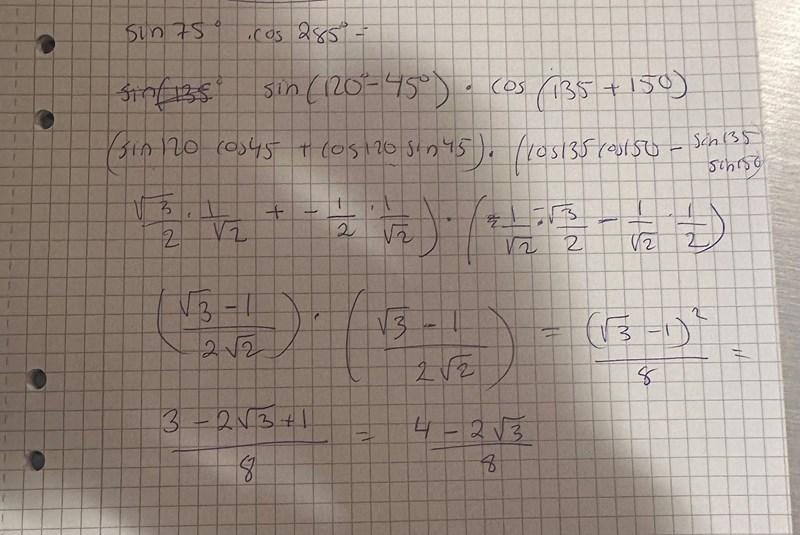 sin 75° · cos 285° =
sin(135° sin(120° - 45°) · cos (135 + 150)
(sin120 cos45 + cos120 sin45) · (cos135 cos150 - sin135 sin150)
√3/2 · 1/√2 + - 1/2 · 1/√2) · (-1/√2 · -√3/2 - 1/√2 · 1/2)
((√3 - 1)/(2√2)) · ((√3 - 1)/(2√2)) = (√3 - 1)²/8 =
(3 - 2√3 + 1)/8 = (4 - 2√3)/8